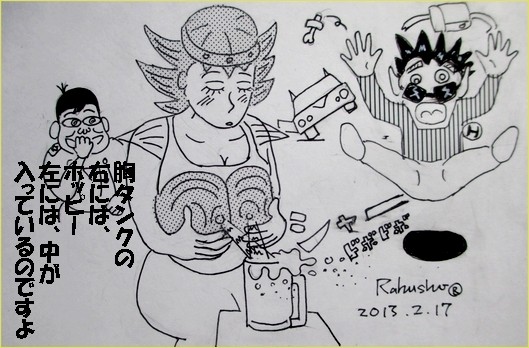 胸タンクの
右には、
ホッピー
左には、中が
入っているのですよ
Rakusho®
2013.2.17